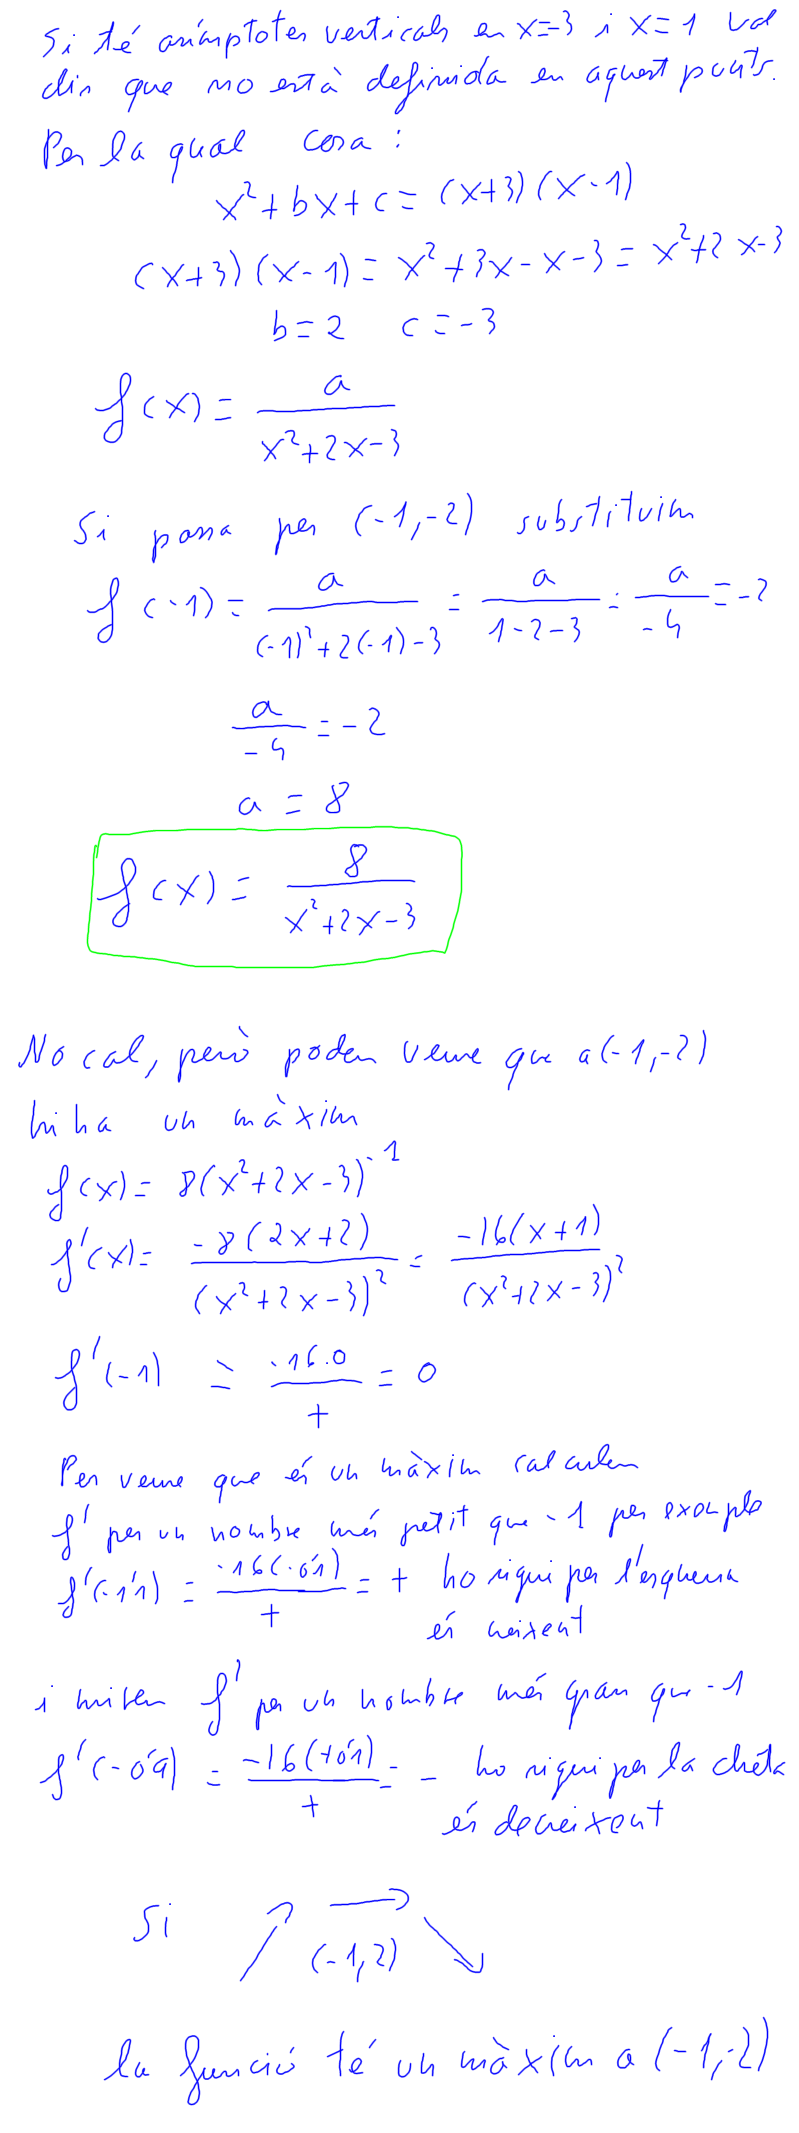 Si té asímptotes verticals en x=-3 i x=1 vol
dir que no està definida en aquest punts.
Per la qual cosa:
x²+bx+c=(x+3)(x-1)
(x+3)(x-1)=x²+3x-x-3=x²+2x-3
b=2 c=-3
f(x)=a/(x²+2x-3)
Si passa per (-1,-2) substituim
f(-1)=a/((-1)²+2(-1)-3)=a/(1-2-3)=a/-4=-2
a/-4=-2
a=8
f(x)=8/(x²+2x-3)
No cal, però podem veure que a(-1,-2)
hi ha un màxim
f(x)=8(x²+2x-3)⁻¹
f'(x)=-8(2x+2)/(x²+2x-3)²=-16(x+1)/(x²+2x-3)²
f'(-1)=-16·0/+=0
Per veure que és un màxim calculem
f' per un nombre més petit que -1 per exemple
f'(-1'1)=-16(-0'1)/+=+ ho sigui per l'esquerra
és creixent
i mirem f' per un nombre més gran que -1
f'(-0'9)=-16(+0'1)/+=- ho sigui per la dreta
és decreixent
Si ↗ → ↘
(-1,2)
la funció té un màxim a (-1,-2)